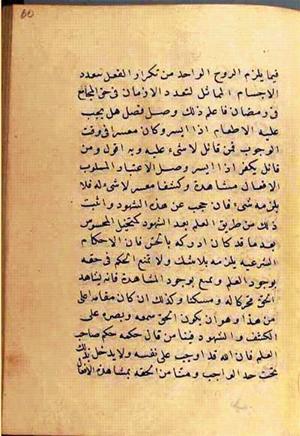 فيما يلزم الروح الواحد من تكرار الفعل بتعدد
الاجسام المماثل لتعدد الازمان في حق المجامع
في رمضان فاعلم ذلك وصل فصل هل يجب
عليه الاطعام اذا ايسر وكان معسرا في وقت
الوجوب فمن قائل لا شيء عليه وبه اقول ومن
قائل يكفر اذا ايسر وصل الاعتبار المسلوب
الافعال مشاهدة وكشفا معسر لا شيء له فلا
يلزمه شيء فان حجب عن هذا الشهود واثبت
ذلك من طريق العلم بعد الشهود كتخيل المحسوس
بعد ما قد كان ادركه بالحس فان الاحكام
الشرعية يلزمه بلا شك ولا تمنع الحكم في حقه
بوجود العلم وتمنع بوجود المشاهدة فانه يشاهد
الحق محركا له ومسكنا وكذلك ان كان مقامه اعلى
من هذا وهو ان يكون الحق سمعه وبصره على
الكشف والشهود فمنا من قال حكمه حكم صاحب
العلم فان الله قد اوجب على نفسه ولا يدخل بذلك
تحت حد الواجب ومنا من الحقه بمشاهدة الافعال